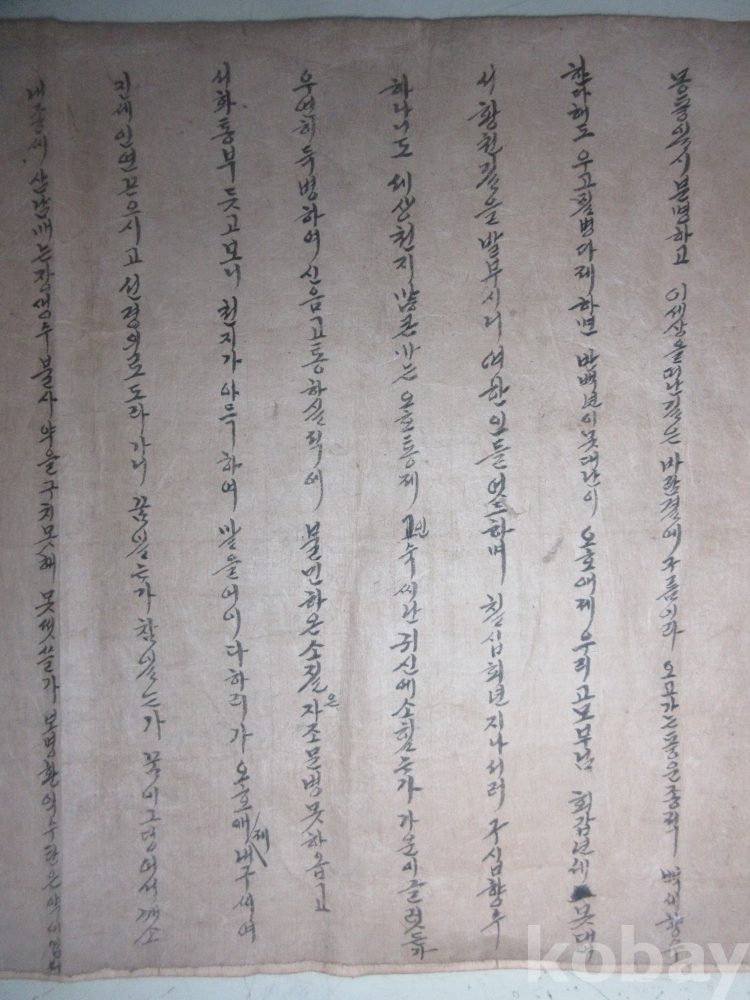 몽둥일시 분명하고 이세상을 떠난길은 바람결에 구름이라 오고가는 풍운종적 백이향수
한다해도 우고질병 다제하면 반백년이 못대난이 오호애제 우리 고모부님 회갑년세 못대
서 황천길을 발부시니 여한인들 업드하며 칠십회년 지나서러 구십향수
하나니도 세상천지 만큰 오호통제 인숙씨난 귀신에 소힘는가 가운이 글럿든가
우연히 득병하여 신음고통 하실적에 불민하온 소질은 자조 문병 못하옵고
서화통부 듯고보니 천지가 아득하여 말을 어이 다하리가 오호애제 내구씨여
진세인연 끈으시고 선경의로 도라가니 꿈일는가 참일는가 꿈이그덩 어서 깨소
삼남매는 장생수 불사약을 구치못해 못쎗쓸가 본명환의 수단은
kobay